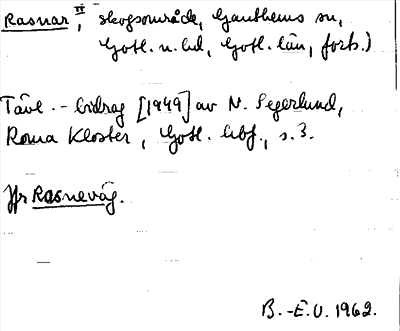 Rasnar II, skogsområde, Ganthems sn,
Gotl. n. hd, Gotl. län, forts.)
Tävl.-bidrag [1949] av N. Segerlund,
Roma Kloster, Gotl. libf., s. 3.
Jfr Rasneväg.
B.-E.U. 1962.